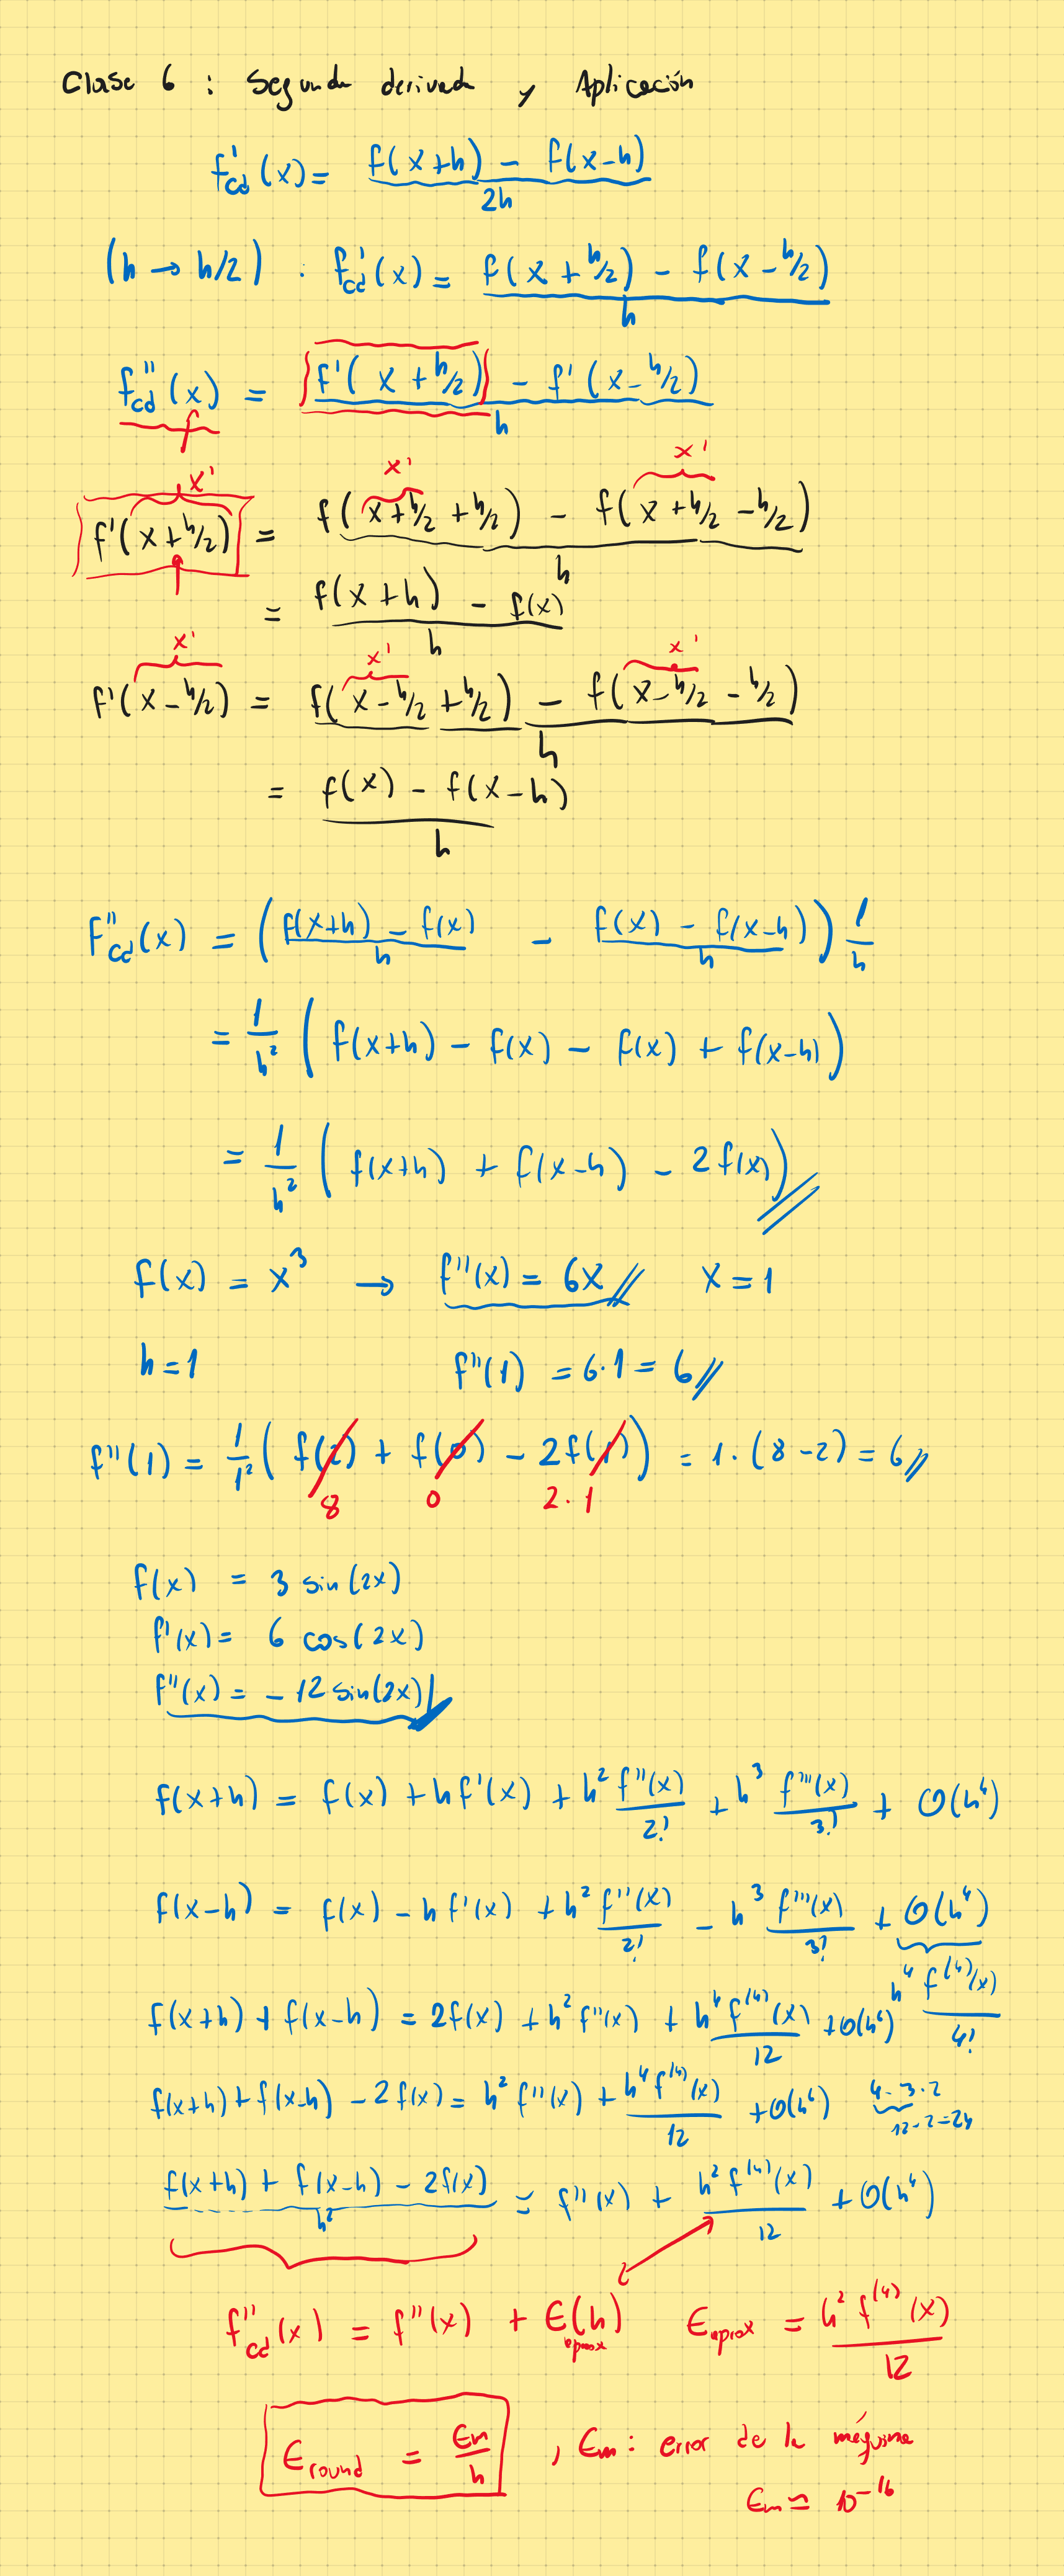 Clase 6 : Segunda derivada y Aplicación
f'cd(x) = (f(x+h) - f(x-h)) / 2h
(h → h/2) : f'cd(x) = (f(x + h/2) - f(x - h/2)) / h
f''cd(x) = (f'(x + h/2) - f'(x - h/2)) / h
x' x' x'
f'(x + h/2) = (f(x + h/2 + h/2) - f(x + h/2 - h/2)) / h
= (f(x+h) - f(x)) / h
x' x' x'
f'(x - h/2) = (f(x - h/2 + h/2) - f(x - h/2 - h/2)) / h
= (f(x) - f(x-h)) / h
F''cd(x) = ((f(x+h) - f(x)) / h - (f(x) - f(x-h)) / h) 1/h
= 1/h² (f(x+h) - f(x) - f(x) + f(x-h))
= 1/h² (f(x+h) + f(x-h) - 2f(x))
f(x) = x³ → f''(x) = 6x x = 1
h = 1 f''(1) = 6·1 = 6
f''(1) = 1/1² (f(2) + f(0) - 2f(1)) = 1·(8 - 2) = 6
8 0 2·1
f(x) = 3 sin(2x)
f'(x) = 6 cos(2x)
f''(x) = -12 sin(2x)
f(x+h) = f(x) + hf'(x) + h² f''(x)/2! + h³ f'''(x)/3! + O(h⁴)
f(x-h) = f(x) - hf'(x) + h² f''(x)/2! - h³ f'''(x)/3! + O(h⁴)
h⁴ f⁽⁴⁾(x)/4!
f(x+h) + f(x-h) = 2f(x) + h² f''(x) + h⁴ f⁽⁴⁾(x)/12 + O(h⁶)
f(x+h) + f(x-h) - 2f(x) = h² f''(x) + h⁴ f⁽⁴⁾(x)/12 + O(h⁶) 4·3·2
12·2=24
(f(x+h) + f(x-h) - 2f(x)) / h² = f''(x) + h² f⁽⁴⁾(x)/12 + O(h⁴)
f''cd(x) = f''(x) + ϵaprox(h) ϵaprox = h² f⁽⁴⁾(x)/12
ϵround = ϵm/h , ϵm : error de la máquina
ϵm ≃ 10⁻¹⁶